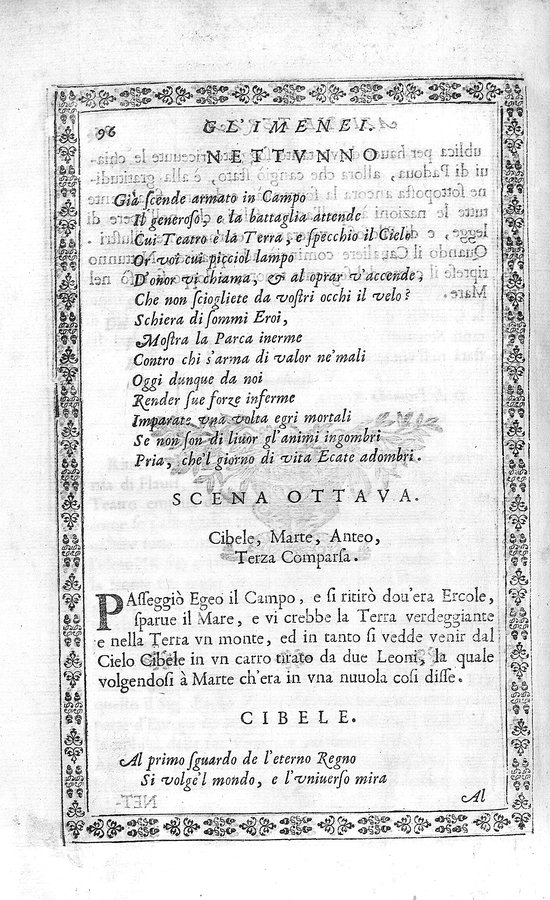 96
GL'IMENEI.
NETTVNNO
Già scende armato in Campo
Il generoso, e la battaglia attende
Cui Teatro è la Terra, e specchio il Cielo
Or voi cui picciol lampo
D'onor vi chiama, & al oprar v'accende,
Che non sciogliete da vostri occhi il velo?
Schiera di sommi Eroi,
Mostra la Parca inerme
Contro chi s'arma di valor ne'mali
Oggi dunque da noi
Render sue forze inferme
Imparate vna volta egri mortali
Se non son di liuor gl'animi ingombri
Pria, che'l giorno di vita Ecate adombri.
SCENA OTTAVA.
Cibele, Marte, Anteo,
Terza Comparsa.
PAsseggiò Egeo il Campo, e si ritirò dou'era Ercole,
sparue il Mare, e vi crebbe la Terra verdeggiante
e nella Terra vn monte, ed in tanto si vedde venir dal
Cielo Cibele in vn carro tirato da due Leoni, la quale
volgendosi à Marte ch'era in vna nuuola cosi disse.
CIBELE.
Al primo sguardo de l'eterno Regno
Si volge'l mondo, e l'vniuerso mira
Al